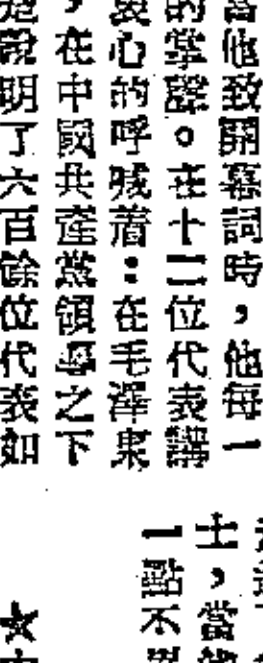 當他致開幕詞時,他每一
的掌聲。在十二位代表講
衷心的呼喊着:在毛澤東
,在中國共產黨領導之下
說明了六百餘位代表如
士,當
一點不
★